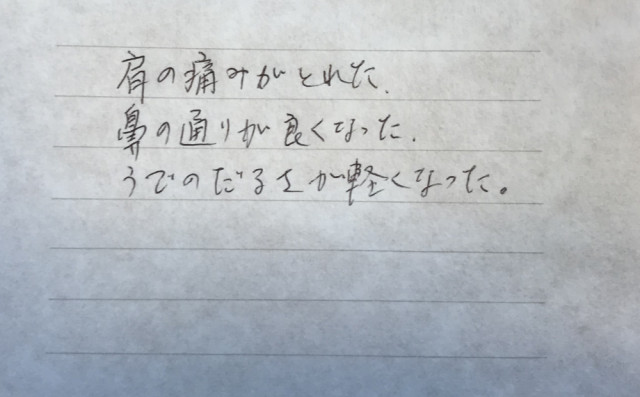 肩の痛みがとれた.
鼻の通りが良くなった.
うでのだるさが軽くなった。